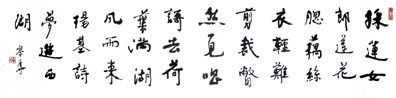 採蓮女
郎蓮花
腮藕絲
衣輕難
剪裁瞥
然見唱
謌去荷
葉滿湖
風雨來
楊基詩
夢遊西
湖